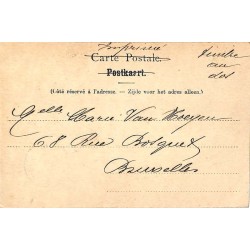 Imprimé
Carte Postale.
Postkaart.
(Côté réservé à l'adresse. — Zijde voor het adres alleen.)
Timbre
au
dos
Melle Marie Van Hoeyen
68 Rue Bosquet
Bruxelles